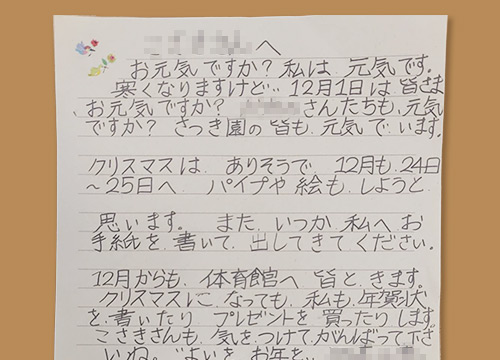 へ
お元気ですか？私は 元気です。
寒くなりますけど… 12月1日は 皆さま
お元気ですか？ さんたちも、元気
ですか？ さつき園の 皆も、元気で います。
クリスマスは、ありそうで 12月も、24日
～25日へ パイプや 絵も、しようと
思います。 また、いつか 私へ お
手紙を、書いて、出してきて ください。
12月からも、体育館へ 皆と、きます。
クリスマスに、なっても、私も、年賀状
を、書いたり プレゼントを 買ったり します。
こさきさんも、気を、つけて、がんばって 下さ
いね。 "よいを お年を…